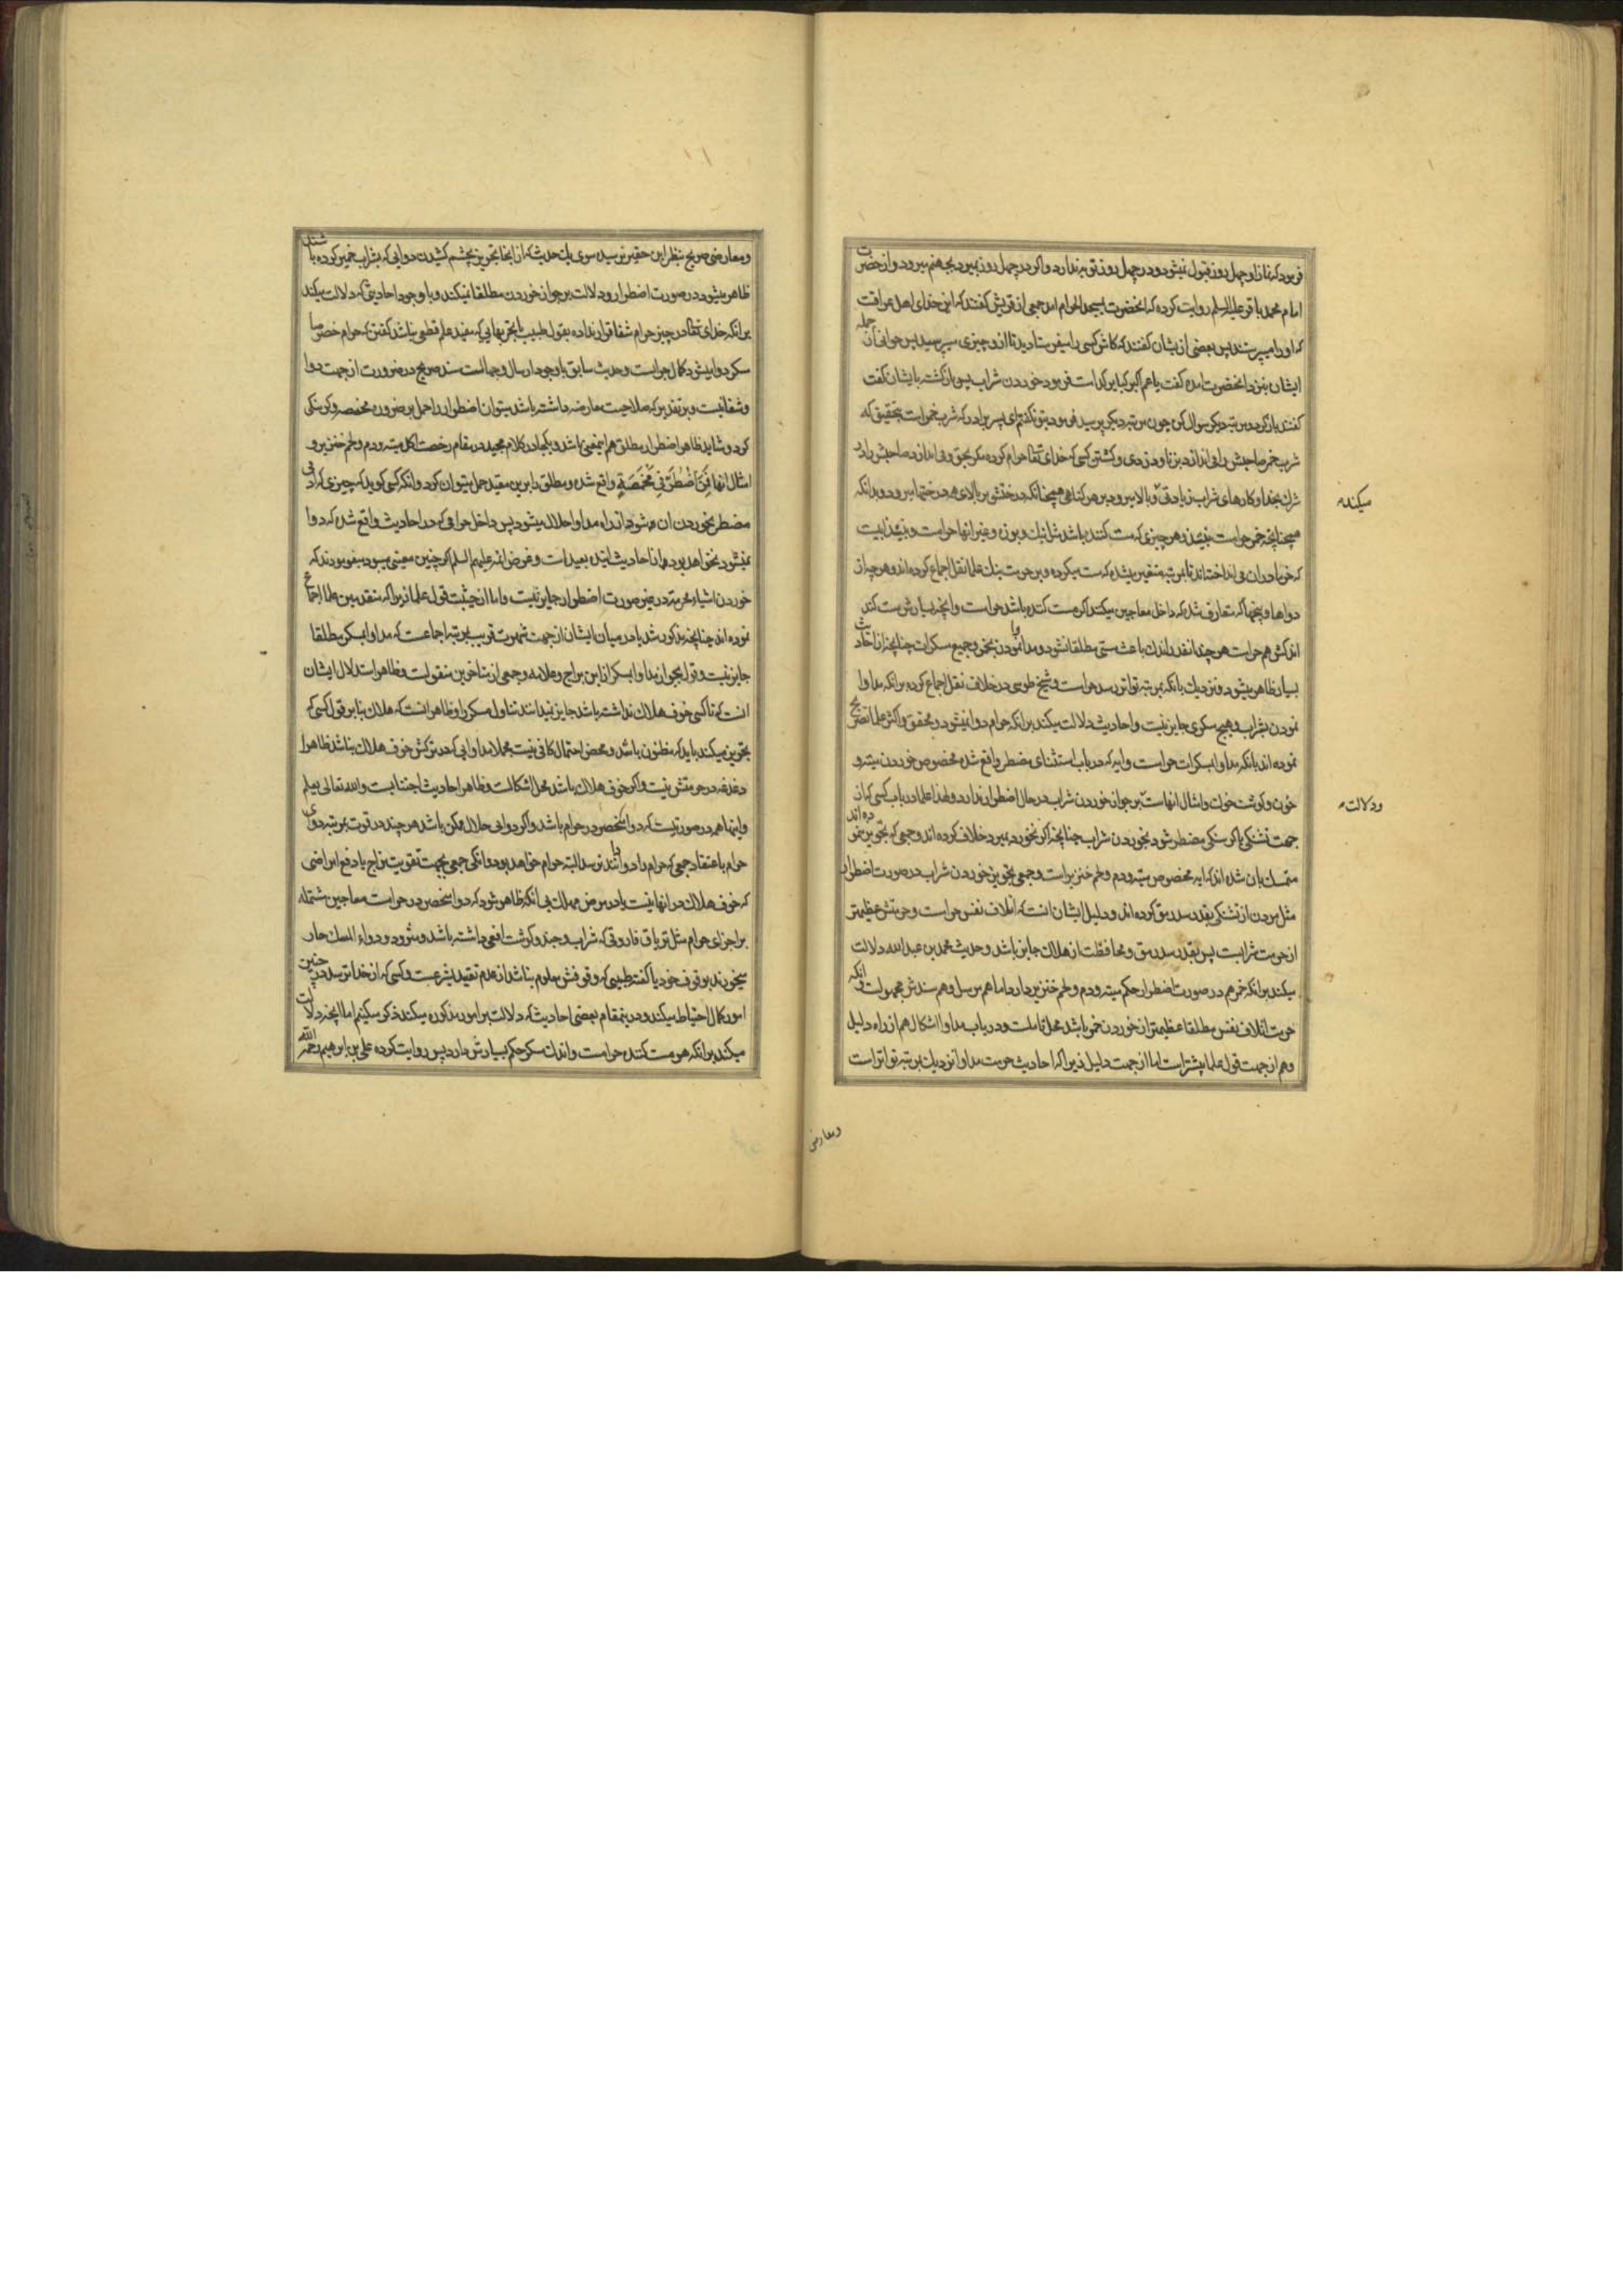 فرمود که نماز او چهل روز قبول نمیشود و در چهل روز توبه ندارد و اگر در چهل روز بمیرد بجهنم میرود و از حضرت
امام محمد باقر علیه السلم روایت کرده که انحضرت بمسجد الحرام امد جمعی از قریش گفتند که این خدای اهل عراقست
که او را میپرستند پس بعضی از یشان گفتند که کاش کسی را میفرستادید تا از و چیزی میپرسید پس جوانی از جمله
ایشان بنزد انحضرت امده گفت یا عم اکبر کبایر کدامست فرمود خوردن شراب پس بازگشته بایشان گفت
گفتند باز گرد و مرتبه دیگر سوال کن چون مرتبه دیگر پرسید فرمود بتو نگفتم ای پسر برادر که شرب خمر است بتحقیق که
شرب خمر صاحبش را می اندازد بزنا و دزدی و کشتن کسی که خدای تعالی حرام کرده مگر بحق و می اندازد صاحبش را در
شرک بخدا و کارهای شراب زیادتی و بالا میرود بر هر گناهی همچنانکه درختش بر بالای همه درختها میرود و بدانکه
همچنانچه خمر حرامست نبیذ و هر چیزی که مست کننده باشد مثل بنک و بوزه و غیر انها حرامست و نبیذ ابیست
که خرما در ان می انداخته اند تا بمرتبه متغیر میشده که مست میکرده و بر حرمت بنک علما نقل اجماع کرده اند و هر چه از
دواها و پختها که متعارف شده که داخل معاجین میکنند اگر مست کننده باشد حرامست و انچه بسیارش مست کند
اندکش هم حرامست هر چند انقدر اندک باعث مستی مطلقا نشود و مداوا نمودن بخمر و جمیع مسکرات چنانچه از احادیث
بسیار ظاهر میشود و نزدیک بانکه بمرتبه تواتر رسد حرامست و شیخ طوسی در خلاف نقل اجماع کرده برانکه مداوا
نمودن بشراب و هیچ مسکری جایز نیست و احادیث دلالت میکند برانکه حرام دوا نمیشود و محقق و اکثر علما تصریح
نموده اند بانکه مداوا بمسکرات حرامست و ایه که در باب استثنای مضطر واقع شده مخصوص خوردن میته و
خون و گوشت خوک و امثال انهاست بر جواز خوردن شراب در حال اضطرار ندارد و لهذا علما در باب کسی که از
جهت تشنگی یا گرسنگی مضطر شود بخوردن شراب چنانچه اگر نخورد بمیرد خلاف کرده اند و جمعی که تجویز ننموده اند
متمسک بان شده اند که ایه مخصوص میته و دم و لحم خنزیر است و جمعی تجویز خوردن شراب در صورت اضطرار
مثل مردن از تشنگی بقدر سد رمق کرده اند و دلیل ایشان انست که اتلاف نفس حرامست و حرمتش عظیمتر
از حرمت شرابست پس بقدر سد رمق و محافظت از هلاک جایز باشد و حدیث محمد بن عبد الله دلالت
میکند برانکه خمر هم در صورت اضطرار حکم میته و دم و لحم خنزیر دارد اما هم مرسل و هم سندش مجهولست و انکه
حرمت اتلاف نفس مطلقا عظیمتر از خوردن خمر باشد محل تاملست و در باب مداوا اشکال هم از راه دلیل
و هم از جهت قول علما بیشتر است اما از جهت دلیل زیرا که احادیث حرمت مداوا نزدیک بمرتبه تواتر است
میکنده
و دلالت
و معارضی
و معارضی صریح بنظر این حقیر نرسیده سوی یک حدیث که از انجا تجویز بچشم کشیدن دوایی که بشراب خمیر کرده باشند
ظاهر میشود در صورت اضطرار و دلالت بر جواز خوردن مطلقا نمیکند و با وجود احادیثی که دلالت میکند
برانکه خدای تعالی در چیز حرام شفا قرار نداده بقول طبیب یا تجربهایی که مفید علم قطعی نباشد گفتن که حرام خصوصا
مسکر دوا میشود کمال جراتست و حدیث سابق با وجود ارسال و جهالت سند صریح در ضرورت از جهت دوا
و شفا نیست و بر تقدیری که صلاحیت معارضه داشته باشد میتوان اضطرار را حمل بر ضرورت مخمصه و گرسنگی
کرد و شاید ظاهر اضطرار مطلق هم اینمعنی باشد و یکجا در کلام مجید در مقام رخصت اکل میته و دم و لحم خنزیر و
امثال انها فَمَنِ اضْطُرَّ فِی مَخْمَصَةٍ واقع شده و مطلق را بر این مقید حمل میتوان کرد و انکه کسی گوید که چیزی که ادمی
مضطر بخوردن ان میشود از راه مداوا حلال میشود پس داخل حرامی که در احادیث واقع شده که دوا
نمیشود نخواهد بود و از احادیث اینده بعید است و غرض ائمه علیهم السلم اگر چنین معنیی میبود میفرمودند که
خوردن اشیاء محرمه در غیر صورت اضطرار جایز نیست و اما از حیثیت قول علما زیرا که متقدمین علما اجماع
نموده اند چنانچه مذکور شد یا در میان ایشان از جهت شهرت قریب بمرتبه اجماعست که مداوا بمسکر مطلقا
جایز نیست و قول بجواز مداوا بمسکر از ابن براج و علامه و جمعی از متاخرین منقولست و ظاهر استدلال ایشان
انست که تا کسی خوف هلاک نداشته باشد جایز نمیدانند تناول مسکر را و ظاهر انست که هلاک بنا بر قول کسی که
تجویز میکند باید که مظنون باشد و محض احتمال کافی نیست مجملا مداوایی که در ترکش خوف هلاک نباشد ظاهرا
دغدغه در حرمتش نیست و اگر خوف هلاک باشد محل اشکالست و ظاهر احادیث اجتنابست و الله تعالی یعلم
و اینها همه در صورتیست که دوا منحصر در حرام باشد و اگر دوایی حلال ممکن باشد هر چند در قوت بمرتبه دوای
حرام باعتقاد جمعی که حرام را دوا دانند نرسد البته حرام خواهد بود و انکه جمعی بجهت تقویت مزاج یا دفع امراضی
که خوف هلاک در انها نیست یا در مرض مهلک بی انکه ظاهر شود که دوا منحصر در حرامست معاجین مشتمله
بر اجزای حرام مثل تریاق فاروقی که شراب و جند و گوشت افعی داشته باشد و مثرود و دواء المسک حار
میخورند بوقوف خود یا گفته طبیبی که وقوفش معلوم نباشد از عدم تقید بشرعست و کسی که از خدا ترسد در چنین
امور کمال احتیاط میکند و در ینمقام بعضی احادیث که دلالت بر امور مذکوره میکند ذکر میکنیم اما انچه دلالت
میکند برانکه هر مست کننده حرامست و اندک مسکر حکم بسیارش دارد پس روایت کرده علی بن ابرهیم رحمه الله